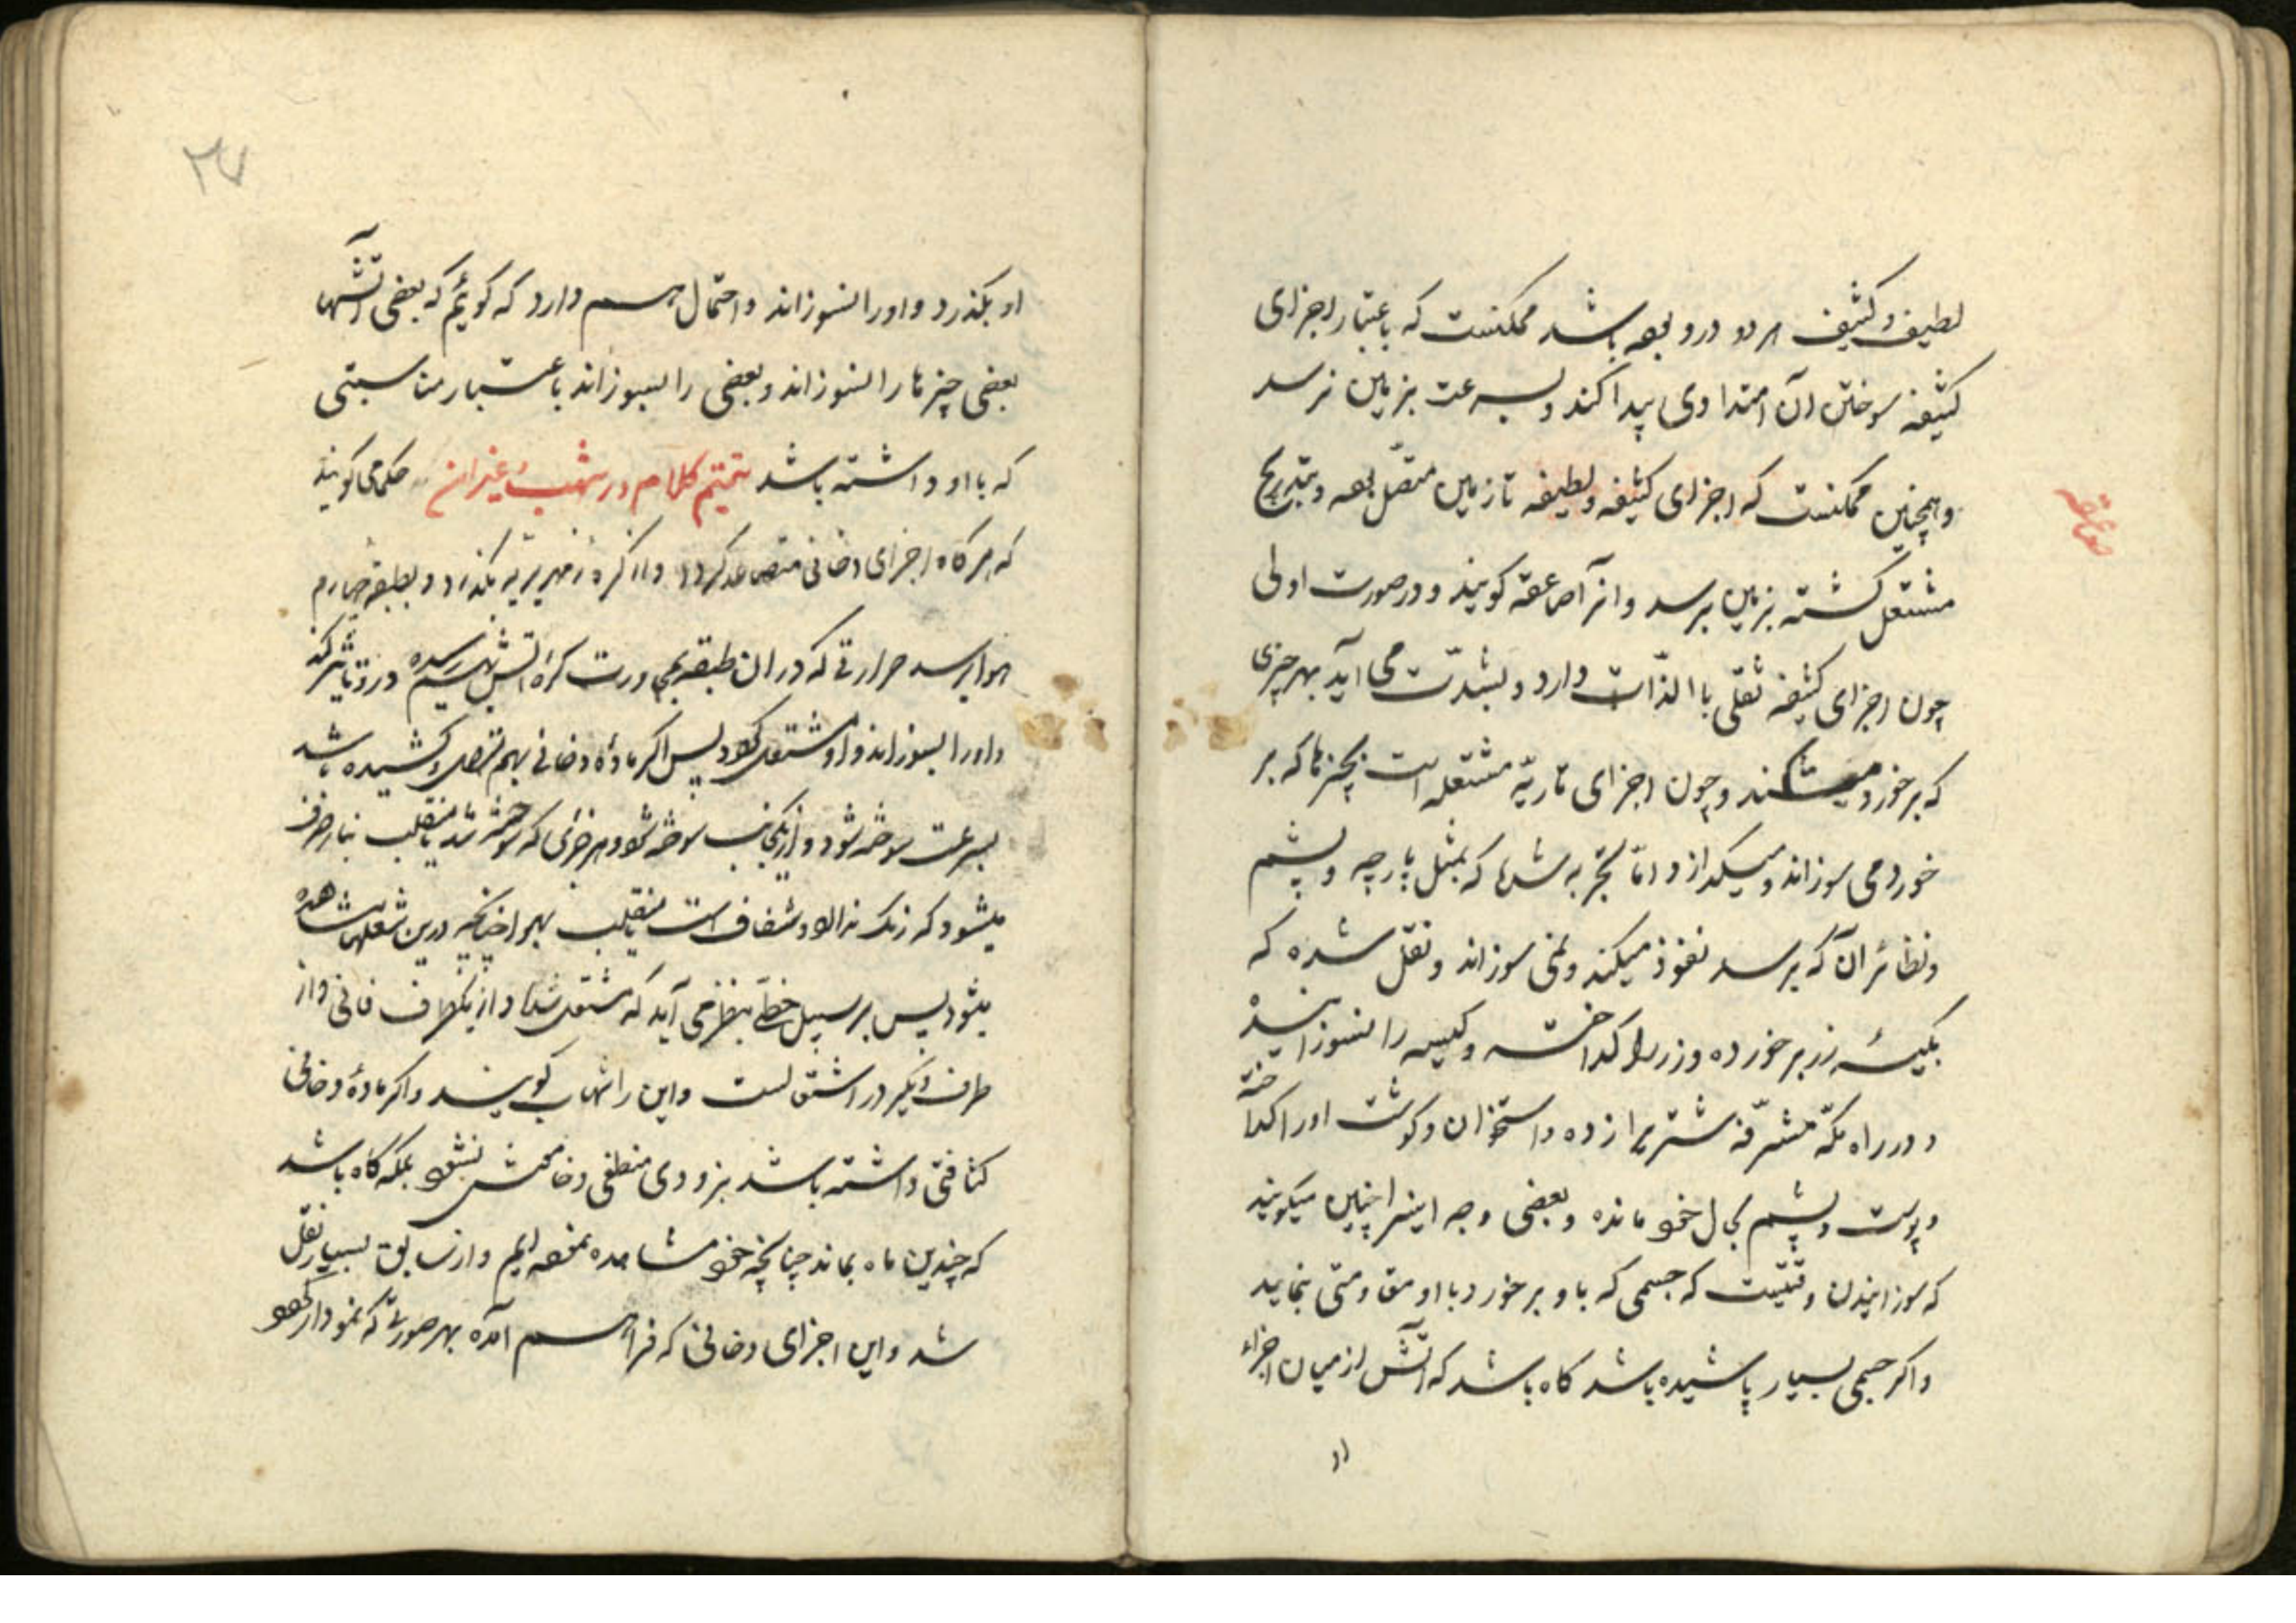 لطیف و کثیف هر دو درو بوده باشد ممکنست که باعتبار اجزای
کثیفه سوختن آن امتدادی پیدا کند و بسرعت بزمین نرسد
صاعقه
و همچنین ممکنست که اجزای کثیفه و لطیفه تا زمین متصل بوده و بتدریج
مشتعل گشته بزمین برسد و انرا صاعقه کویند و در صورت اولی
چون اجزای کثیفه ثقلی باالذّات دارد و بشدّت می آید بهر چیزی
که بر خورد میشکند و چون اجزای ناریّه مشتعله است بچیزها که بر
خورد می سوزاند و میکدازد امّا بتجربه شرها که بمثل پارچه و پشم
و نظائر آن که برسد نفوذ میکند و نمی سوزاند و نقل شده که
بکیسۀ زر بر خورده و زر را کداخته و کیسه را نسوزانیده
و در راه مکّه مشرّفه شتریرا زده و استخوان و کوشت او را کداخته
و پوست و پشم بحال خود مانده و بعضی وجه اینرا چنین میکویند
که سوزانیدن وقتیست که جسمی که باو بر خورد با او مقاومتی بنماید
و اکر جسمی بسیار پاشیده باشد کاه باشد که آتش از میان اجزاء
او
۲۷
او بکذرد و او را نسوزاند و احتمال هم دارد که کوئیم که بعضی آتشها
بعضی چیزها را نسوزاند و بعضی را بسوزاند باعتبار مناسبتی
که با او داشته باشد تتمیم کلام در شهب و غیر ان حکما می کویند
که هر کاه اجزای دخانی متصاعد کردد و از کره زمهریریه بکذرد و بطبقه چهارم
هوا برسد حرارتی که در ان طبقه بمجاورت کره آتش بهم رسیده درو تاثیر کند
و او را بسوزاند و او مشتعل کردد پس اکر ماده دخانی بهم متصل و کشیده باشد
بسرعت سوخته شود و از یکجانب سوخته شود و هر جزئی که سوخته شد یا منقلب بنار صرف
میشود که رنک ندارد و شفاف است یا منقلب بهوا چنانچه درین شعلها مشاهده
میشود پس بر سبیل خطّی بنظر می آید که مشتعل شده و از یکطرف فانی و از
طرف دیگر در اشتعالست و این را شهاب کویند و اکر مادۀ دخانی
کثافتی داشته باشد بزودی منطفی و خامش نشود بلکه کاه باشد
که چندین ماه بماند چنانچه خود مشاهده نموده ایم و از سابق بسیار نقل
شد و این اجزای دخانی که فراهم آمده بهر صورتی که نمودار کردد